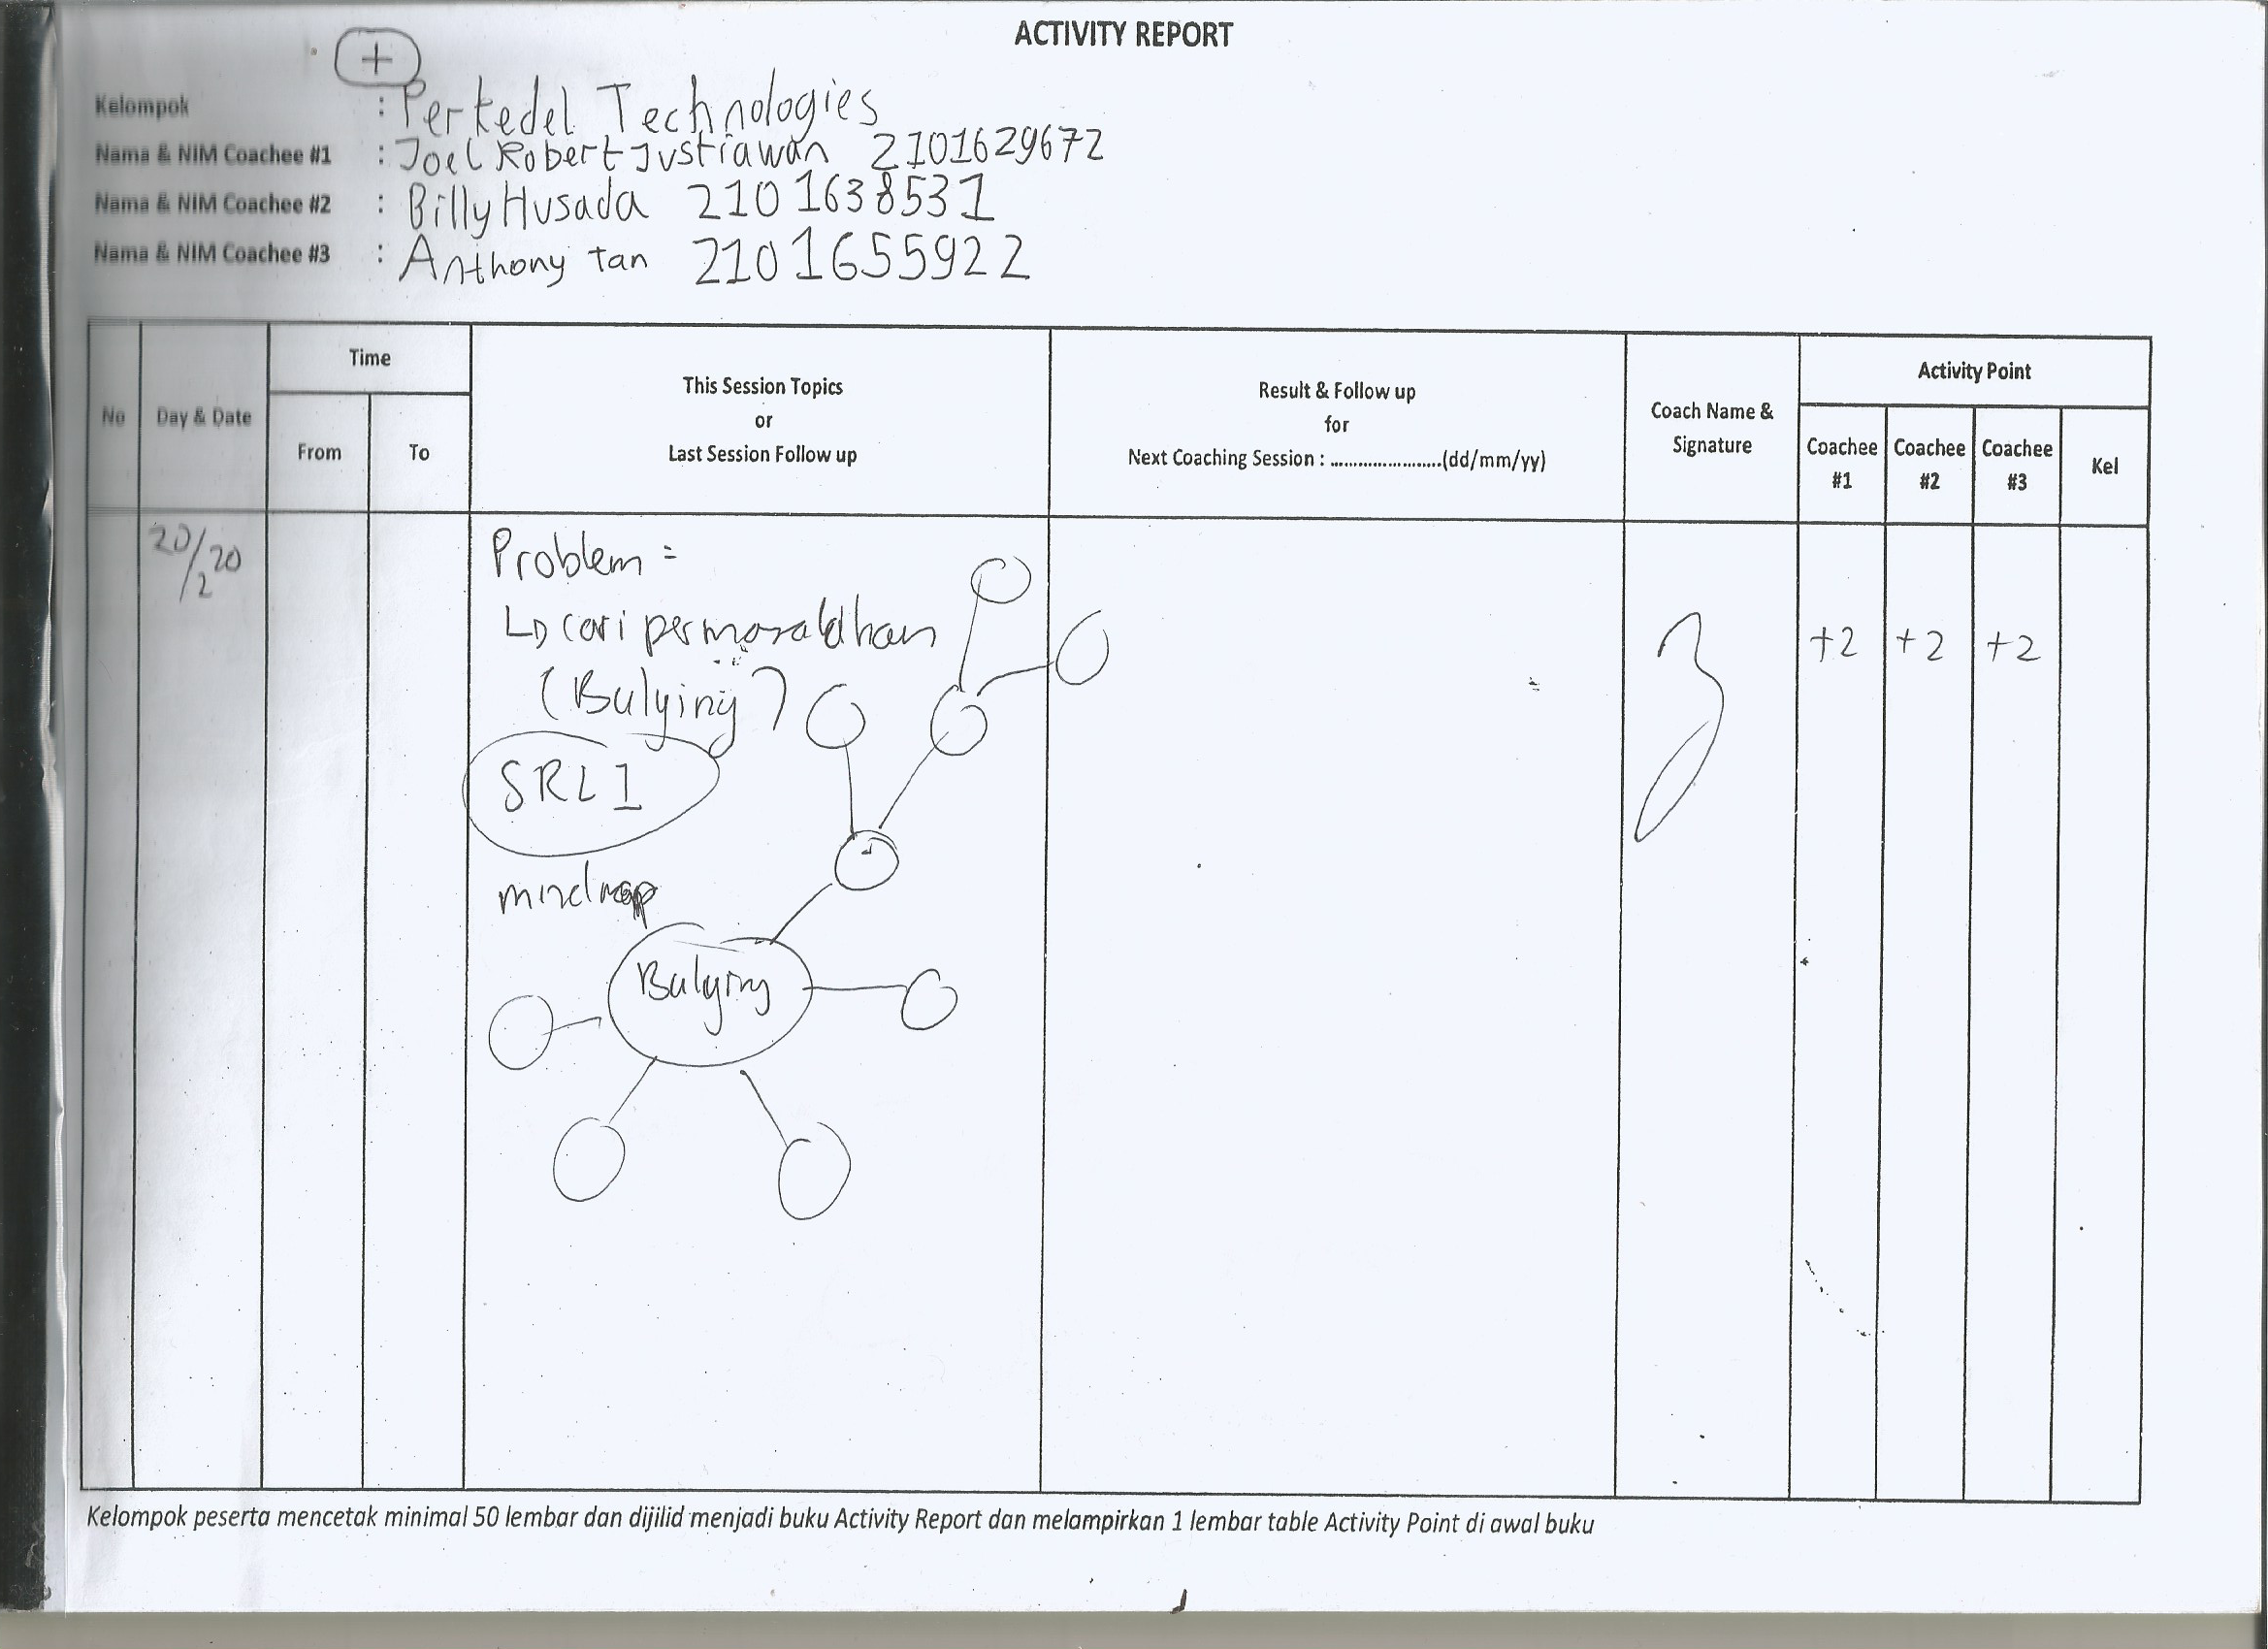 ACTIVITY REPORT
+
Kelompok : Perkedel Technologies
Nama & NIM Coachee #1 : Joel Robert Justiawan 2101629672
Nama & NIM Coachee #2 : Billy Husada 2101638531
Nama & NIM Coachee #3 : Anthony tan 2101655922
No
Day & Date
Time
From
To
This Session Topics
or
Last Session Follow up
Result & Follow up
for
Next Coaching Session : ......................(dd/mm/yy)
Coach Name &
Signature
Activity Point
Coachee
#1
Coachee
#2
Coachee
#3
Kel
20/2 20
Problem =
cari permasaldhan
(Bulying)
SRL 1
mindmap
Bulying
+2
+2
+2
Kelompok peserta mencetak minimal 50 lembar dan dijilid menjadi buku Activity Report dan melampirkan 1 lembar table Activity Point di awal buku